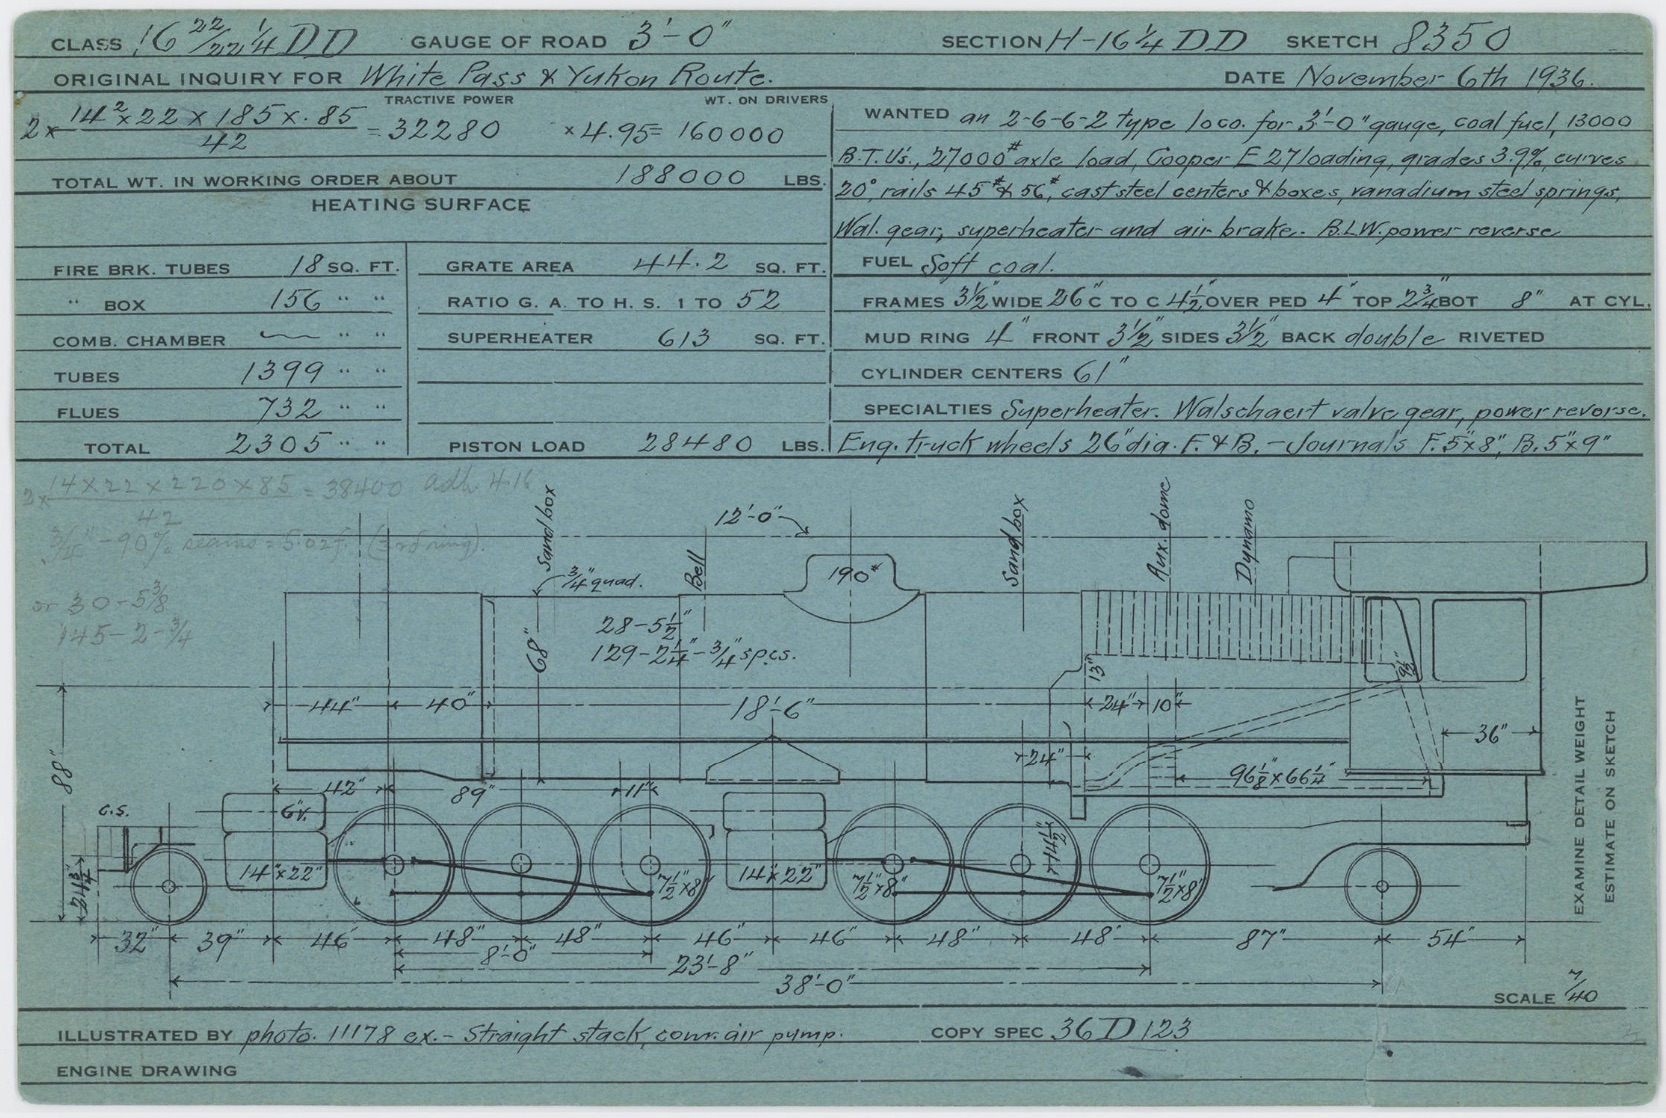 CLASS 16 22/22 1/4 DD GAUGE OF ROAD 3'-0" SECTION H-16 1/4 DD SKETCH 8350
ORIGINAL INQUIRY FOR White Pass & Yukon Route. DATE November 6th 1936.
TRACTIVE POWER WT. ON DRIVERS
2 x 14² x 22 x 185 x .85 / 42 = 32280 x 4.95 = 160000
TOTAL WT. IN WORKING ORDER ABOUT 188000 LBS.
HEATING SURFACE
FIRE BRK. TUBES 18 SQ. FT.
" BOX 156 " "
COMB. CHAMBER — " "
TUBES 1399 " "
FLUES 732 " "
TOTAL 2305 " "
GRATE AREA 44.2 SQ. FT.
RATIO G. A. TO H. S. 1 TO 52
SUPERHEATER 613 SQ. FT.
PISTON LOAD 28480 LBS.
WANTED an 2-6-6-2 type loco. for 3'-0" gauge, coal fuel, 13000
B.T.U's., 27000# axle load, Cooper E27 loading, grades 3.9%, curves
20°, rails 45# & 56#, cast steel centers & boxes, vanadium steel springs,
Wal. gear, superheater and air brake. B.L.W. power reverse
FUEL Soft coal.
FRAMES 3½" WIDE 26" C TO C 4½" OVER PED 4" TOP 2¾" BOT 8" AT CYL.
MUD RING 4" FRONT 3½" SIDES 3½" BACK double RIVETED
CYLINDER CENTERS 61"
SPECIALTIES Superheater. Walschaert valve gear, power reverse.
Eng. truck wheels 26" dia. F. & B. - Journals F. 5"x8", B. 5"x9"
2 x 14 x 22 x 220 x 85 / 42 = 38400 adh. 4.16
3/4" - 90% seams = 5.02 f. (3rd ring).
or 30-5 3/8
145-2-3/4
Sand box
Bell
12'-0"
190#
Sand box
Aux. dome
Dynamo
3/4" quad.
28-5½"
129-2¼"-¾" spcs.
68"
13"
44" 40" 18'-6" 24" 10"
36"
24"
96⅛" x 66¼"
88"
42" 89" 11"
C.S.
6"v.
24¾"
14"x22" 7½"x8" 14"x22" 7½"x8" 14½" 7½"x8"
32" 39" 46" 48" 48" 46" 46" 48" 48" 87" 54"
8'-0"
23'-8"
38'-0"
EXAMINE DETAIL WEIGHT
ESTIMATE ON SKETCH
SCALE 7/40
ILLUSTRATED BY photo. 11178 ex.- Straight stack, comr. air pump. COPY SPEC 36D123
ENGINE DRAWING